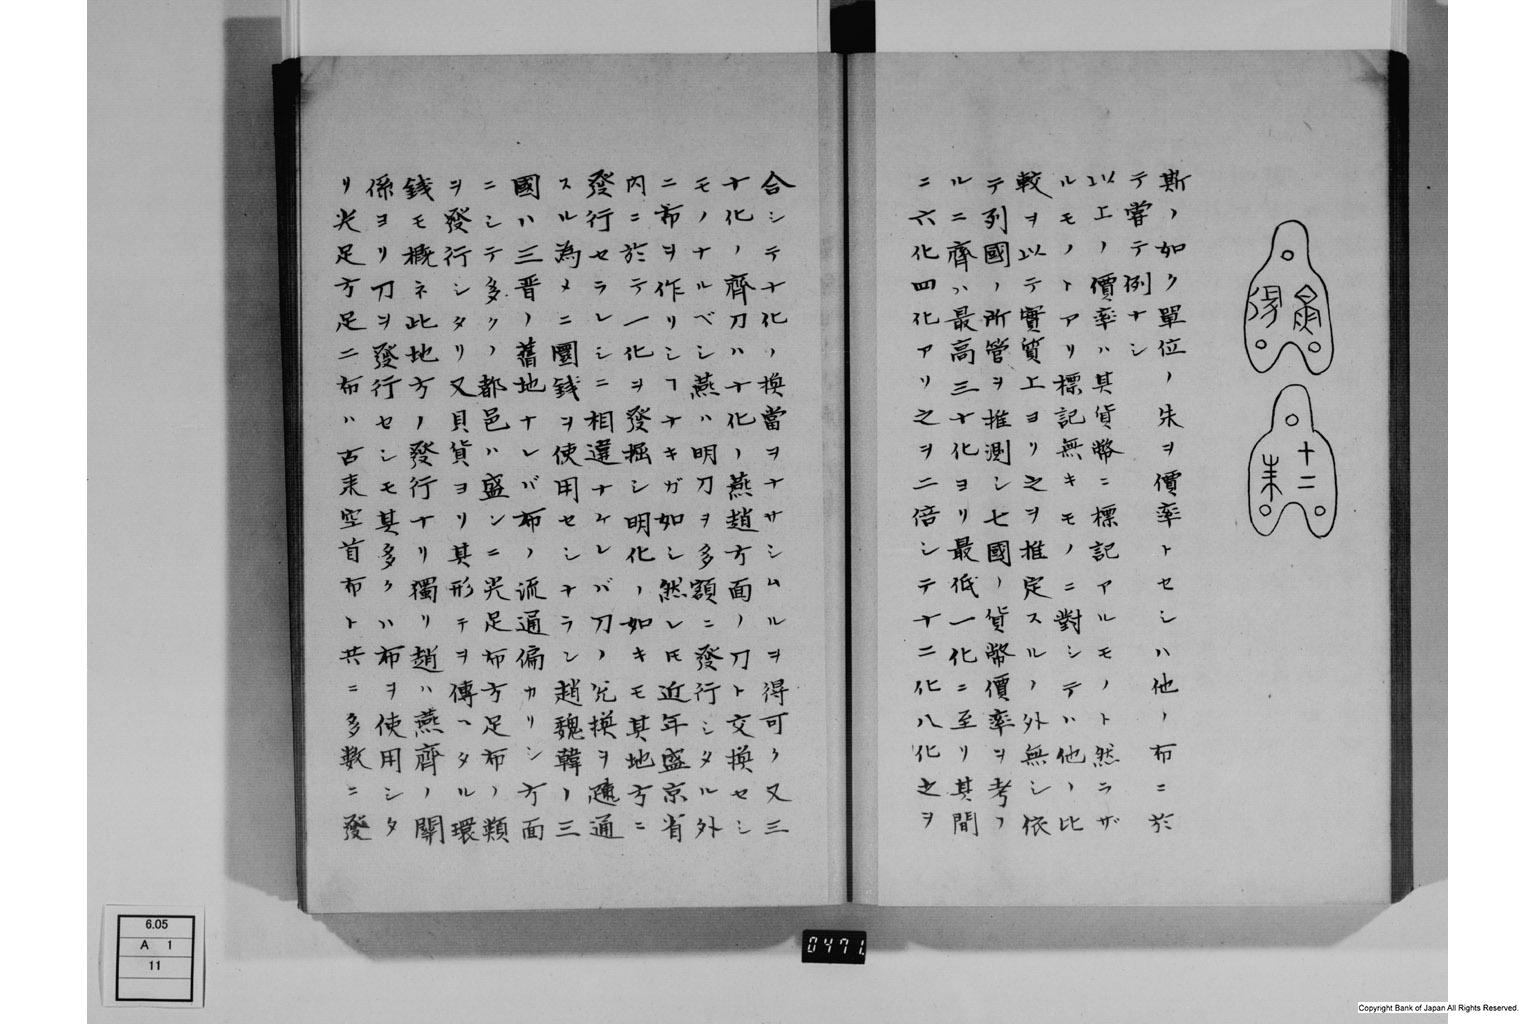 十二
朱
斯ノ如ク單位ノ朱ヲ價率トセシハ他ノ布ニ於
テ嘗テ例ナシ
以上ノ價率ハ其貨幣ニ標記アルモノト然ラザ
ルモノトアリ標記無キモノニ對シテハ他ノ比
較ヲ以テ實質上ヨリ之ヲ推定スルノ外無シ依
テ列國ノ所管ヲ推測シ七國ノ貨幣價率ヲ考フ
ルニ齊ハ最高三十化ヨリ最低一化ニ至リ其間
ニ六化四化アリ之ヲ二倍シテ十二化八化之ヲ
合シテ十化ノ換當ヲナサシムルヲ得可ク又三
十化ノ齊刀ハ十化ノ燕趙方面ノ刀ト交換セシ
モノナルベシ燕ハ明刀ヲ多額ニ發行シタル外
ニ布ヲ作リシヿナキガ如シ然レ𪜈近年盛京省
内ニ於テ一化ヲ發掘シ明化ノ如キモ其地方ニ
發行セラレシニ相違ナケレバ刀ノ兌換ヲ疏通
スル為メニ圜錢ヲ使用セシナラン趙魏韓ノ三
國ハ三晋ノ舊地ナレバ布ノ流通偏カリシ方面
ニシテ多クノ都邑ハ盛ンニ尖足布方足布ノ類
ヲ發行シタリ又貝貨ヨリ其形テヲ傳ヘタル環
錢モ概ネ此地方ノ發行ナリ獨リ趙ハ燕齊ノ關
係ヨリ刀ヲ發行セシモ其多クハ布ヲ使用シタ
リ尖足方足二布ハ古来空首布ト共ニ多數ニ發
6.05
A 1
11
0471
Copyright Bank of Japan All Rights Reserved.